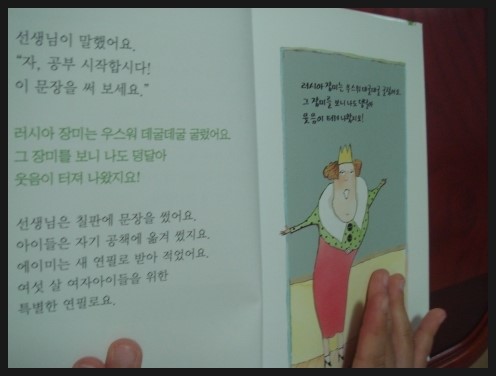 선생님이 말했어요.
"자, 공부 시작합시다!
이 문장을 써 보세요."
러시아 장미는 우스워 데굴데굴 굴렀어요
그 장미를 보니 나도 덩달아
웃음이 터져 나왔지요!
선생님은 칠판에 문장을 썼어요.
아이들은 자기 공책에 옮겨 썼지요.
에이미는 새 연필로 받아 적었어요.
여섯 살 여자아이들을 위한
특별한 연필로요.
러시아 장미는 우스워 데굴데굴 굴렀어요
그 장미를 보니 나도 덩달아
웃음이 터져 나왔지요!